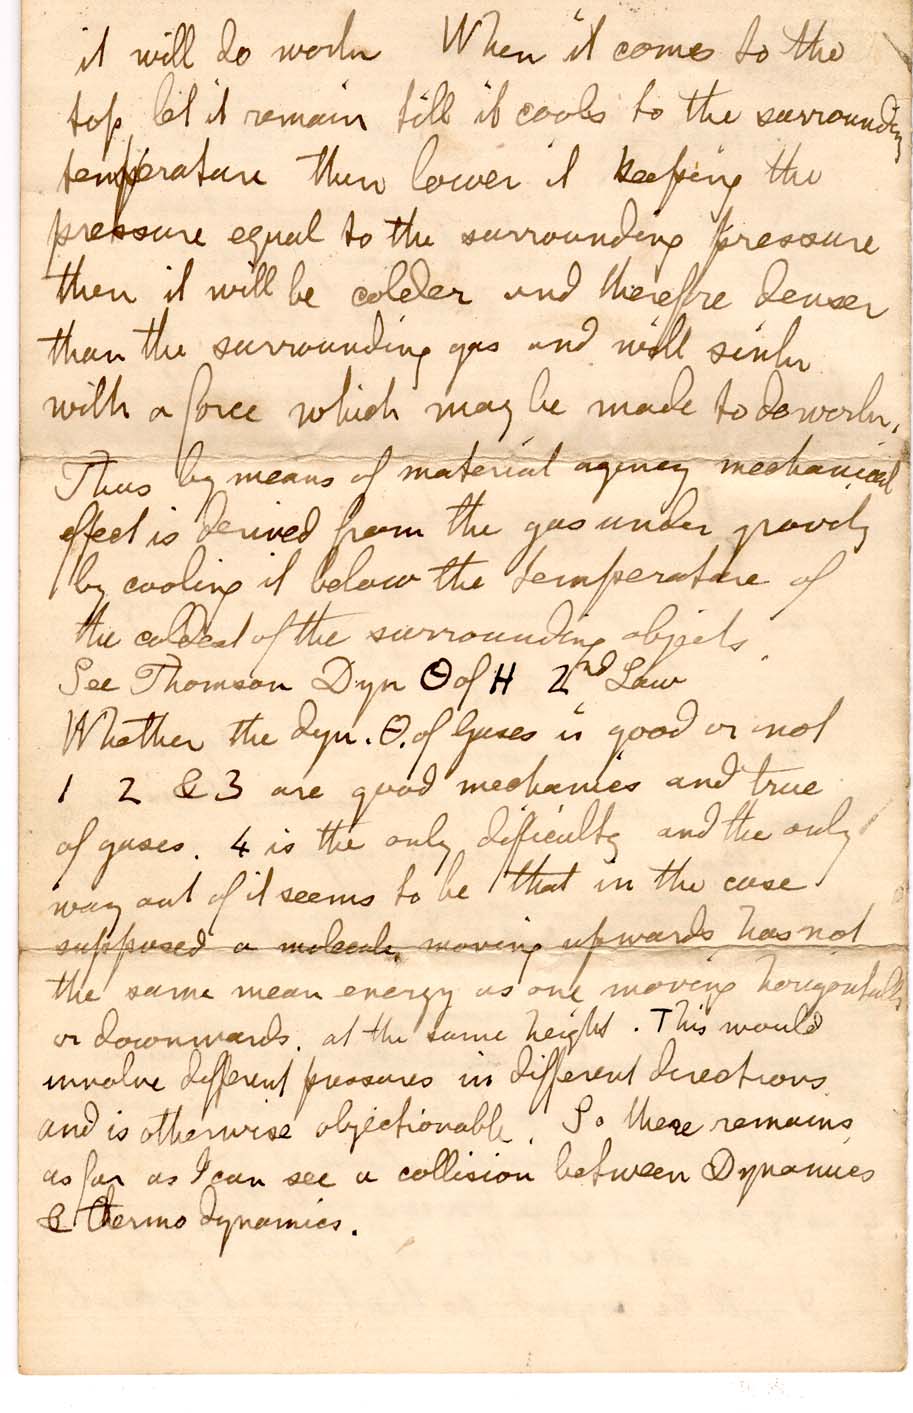 it will do work When it comes to the
top let it remain till it cools to the surrounding
temperature then lower it keeping the
pressure equal to the surrounding pressure
then it will be colder and therefore denser
than the surrounding gas and will sink
with a force which may be made to do work.
Thus by means of material agency mechanical
effect is derived from the gas under gravity
by cooling it below the temperature of
the coldest of the surrounding objects
See Thomson Dyn Θ of H 2nd Law
Whether the dyn. Θ. of Gases is good or not
1 2 & 3 are good mechanics and true
of gases. 4 is the only difficulty and the only
way out of it seems to be that in the case
supposed a molecule moving upwards has not
the same mean energy as one moving horizontally
or downwards. at the same height. This would
involve different pressures in different directions
and is otherwise objectionable. So there remains
as far as I can see a collision between Dynamics
& thermodynamics.